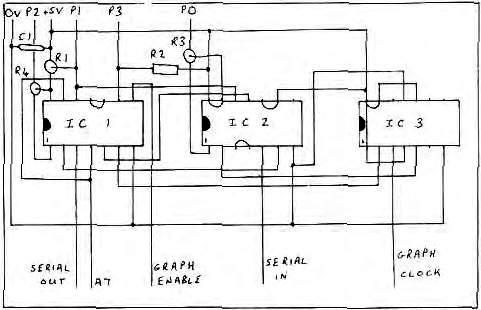 0V P2 +5V P1 P3 P0
C1
R1
R2
R3
R4
IC 1
IC 2
IC 3
SERIAL OUT
A7
GRAPH ENABLE
SERIAL IN
GRAPH CLOCK